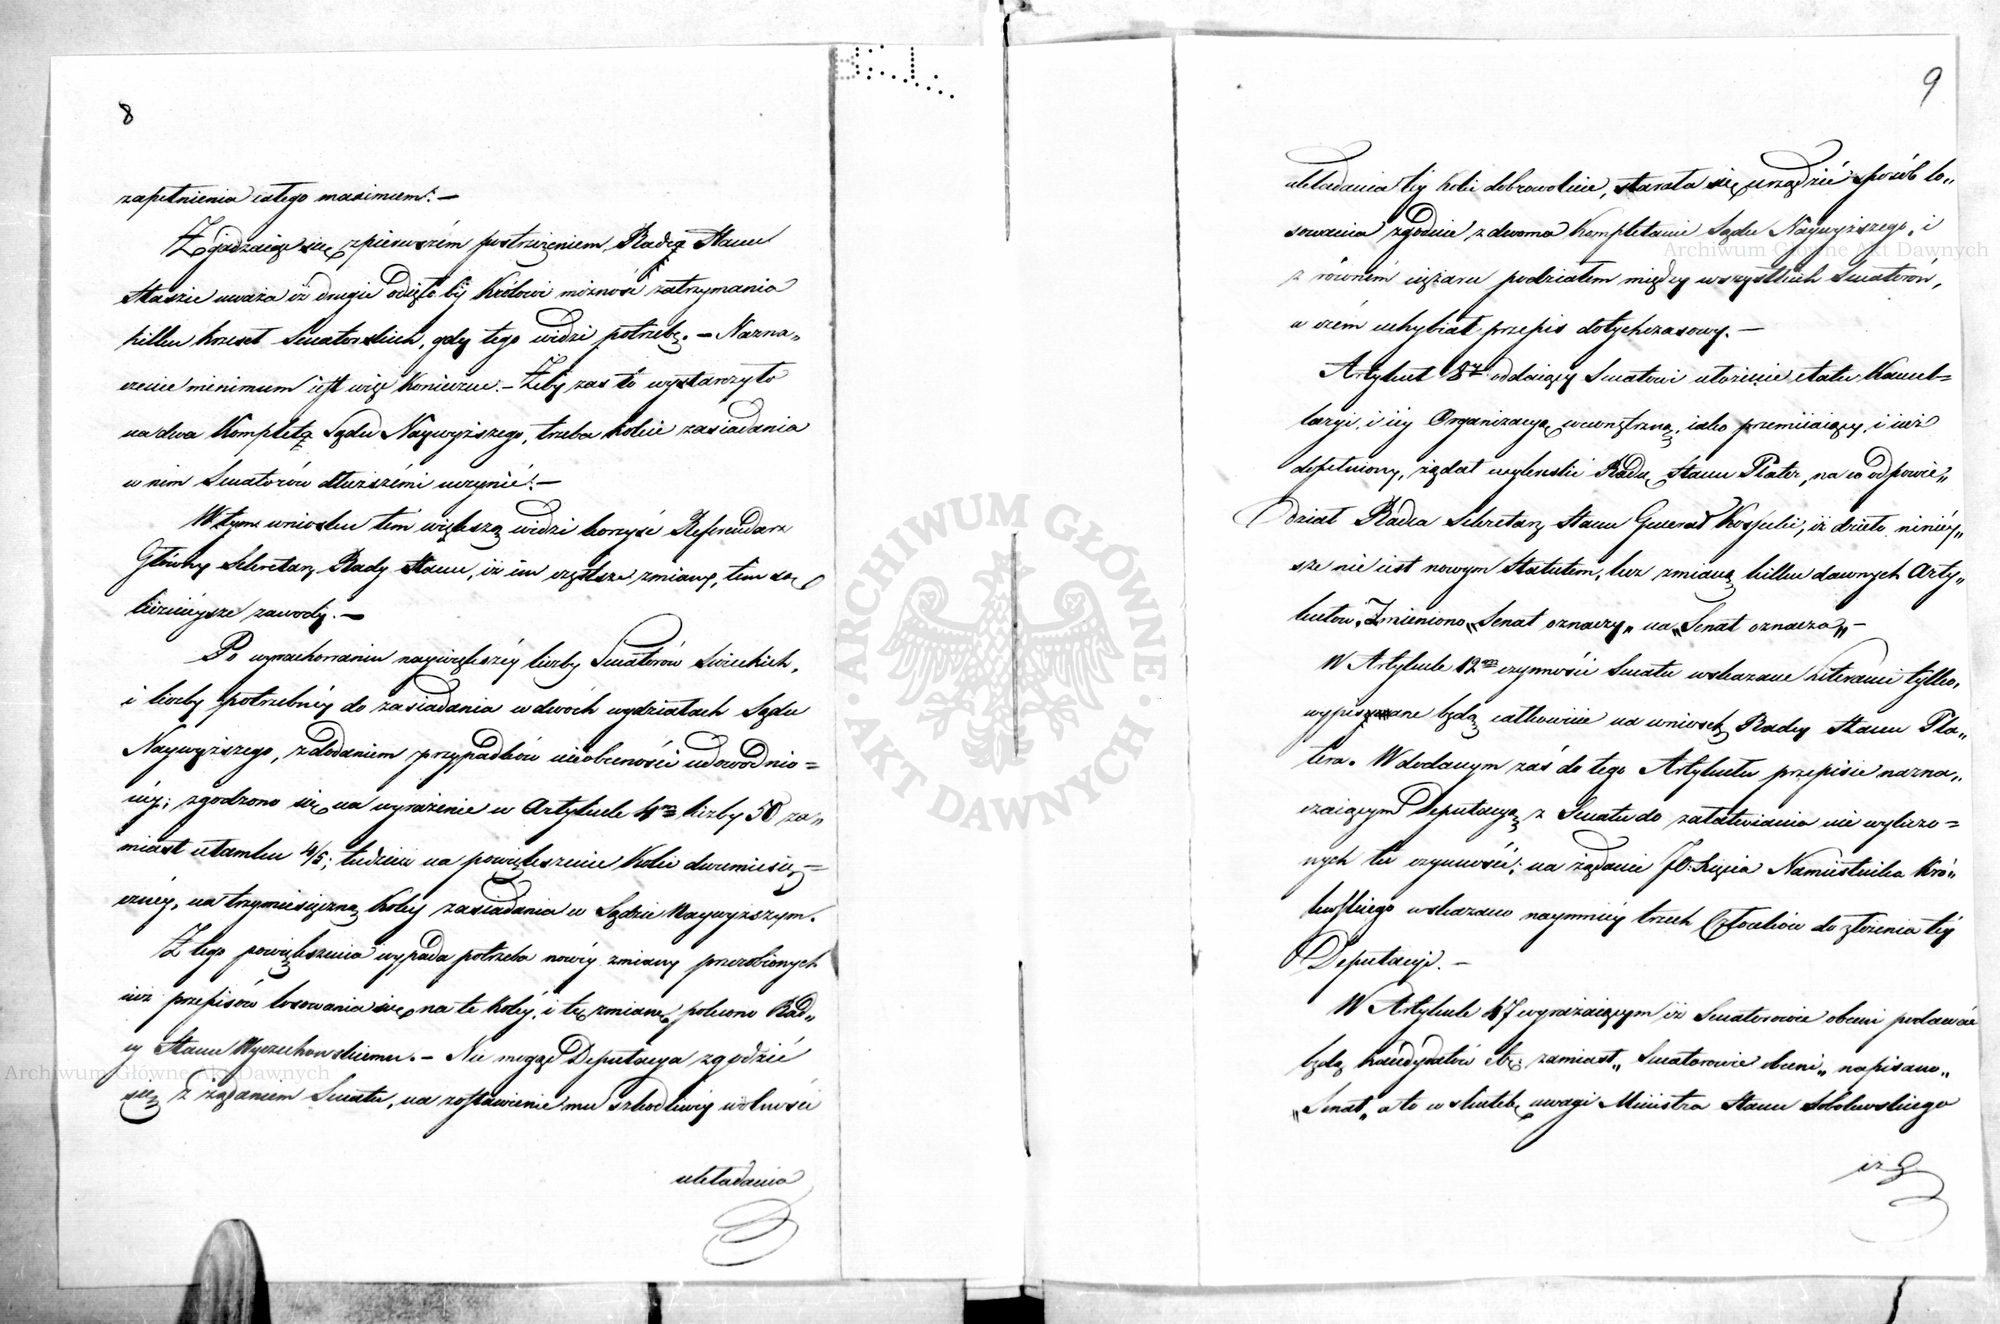 8
zapełnienia całego maximum. —
Zgadzaiąc się z pierwszém postrzeżeniem, Radca Stanu
Staszic uważa iż drugie odięło by Królowi możność zatrzymania
kilku krzeseł Senatorskich, gdy tego widzi potrzebę. — Nazna„
czenie minimum iest więc konieczne. — Żeby zaś to wystarczyło
na dwa Komplety Sądu Naywyższego, trzeba koleie zasiadania
w nim Senatorów dłuższémi uczynić. —
W tym wniosku tém większą widzi korzyść Referendarz
Główny Sekretarz Rady Stanu, iż im częstsze zmiany, tém
licznieysze zawody. —
Po wyrachowaniu naywiększéy liczby Senatorów Świeckich,
i liczby potrzebnéy do zasiadania w dwóch wydziałach Sądu
Naywyższego, z dodaniem przypadków nieobecności udowodnio=
néy; zgodzono się na wyrażenie w Artykule 4m liczby 50 za„
miast ułamku 4/5; tudzież na powiększenie kolei dwumiesię=
cznéy, na trzymiesięczną koley zasiadania w Sądzie Naywyższym.
Z tego powiększenia wypada potrzeba nowéy zmiany przerobionych
iuż przepisów losowania się na te koléy, i tę zmianę polecono Rad„
cy Stanu Wyczechowskiemu. — Nie mogąc Deputacya zgodzić
się z żądaniem Senatu, na zostawienie mu szkodliwéy wolności
układania
9
układania téy kolei dobrowolnie, starała się urządzić sposób lo„
sowania zgodnie z dwoma Kompletami Sądu Naywyższego, i
z równém ciężaru podziałem między wszystkich Senatorów,
w czém uchybiał przepis dotychczasowy. —
Artykuł 8y oddaiący Senatowi ułożenie etatu Kancel=
laryi, i iéy Organizacyą wewnętrzną, iako przemiiaiący, i iuż
dopełniony, żądał wykreślić Radca Stanu Plater, na co odpowie„
dział Radca Sekretarz Stanu Generał Kossecki, iż dzieło niniey„
sze nie iest nowym Statutem, lecz zmianą kilku dawnych Arty„
kułów. Zmieniono „Senat oznaczy„ na „Senat oznacza„ —
W Artykule 12m czynności Senatu wskazane literami tylko,
wypisane będą całkowicie na wniosek Radcy Stanu Pla„
tera. W dodanym zaś do tego Artykułu przepisie nazna„
czaiącym Deputacyą z Senatu do załatwiania nie wyliczo=
nych tu czynności; na żądanie JO. Xięcia Namiestnika Kró„
lewskiego wskazano naymniéy trzech Członków do złożenia téy
Deputacyi. —
W Artykule 47 wyrażaiącym iż Senatorowie obecni podawać
będą kandydatów etc. zamiast „Senatorowie obecni„ napisano„
„Senat„ a to w skutek uwagi Ministra Stanu Sobolewskiego
iż
Archiwum Główne Akt Dawnych
Archiwum Główne Akt Dawnych
ARCHIWUM GŁÓWNE
AKT DAWNYCH